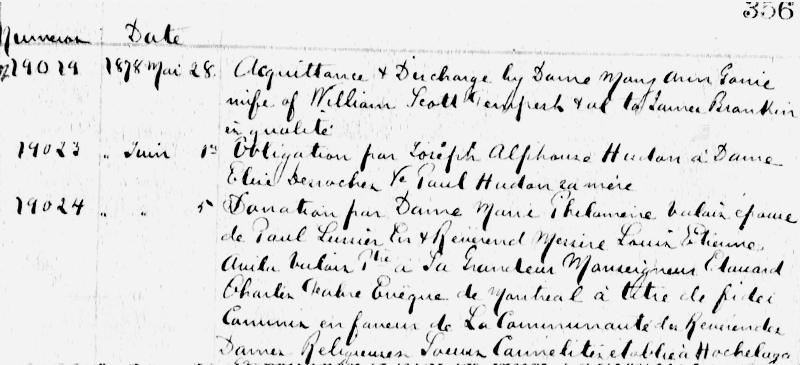 356
Numeros Date
19019 1878 Mai 28. Acquittance & Discharge by Dame Mary Ann
wife of William Scott Tempest & al to James Brankin
ès qualité
19023 " Juin 1er Obligation par Joseph Alphonse Hudon à Dame
Elise Desrochers Ve Paul Hudon sa mère
19024 " " 5 Donation par Dame Marie Philomène Valois épouse
de Paul Lussier Er & Révérend Messire Louis Etienne
Avila Valois Ptre à Sa Grandeur Monseigneur Edouard
Charles Fabre Evêque de Montreal à titre de fidei
Commis en faveur de La Communauté des Révérendes
Dames Religieuses Soeurs Carmelites établie à Hochelaga